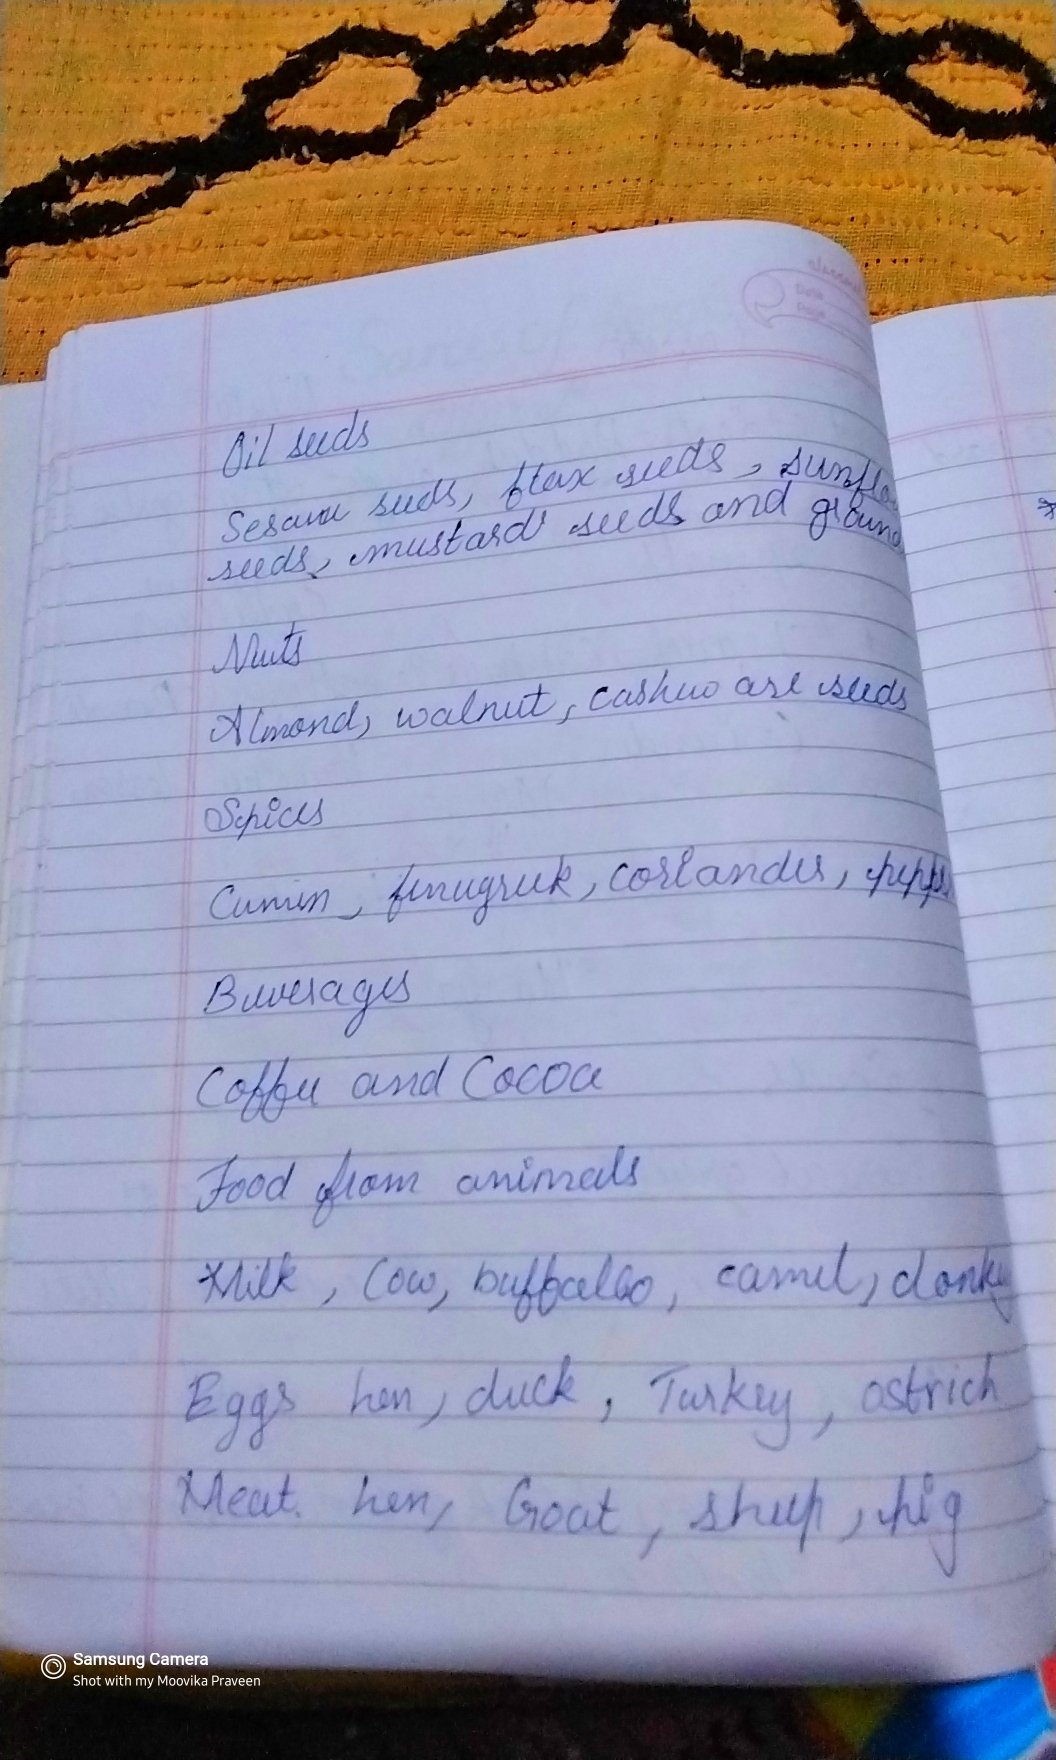 classmate
Date
Page
Oil seeds
Sesame seeds, flax seeds, sunflo
seeds, mustard seeds and ground
Nuts
Almond, walnut, cashew are seeds
Spices
Cumin, fenugreek, coriander, pepper
Beverages
Coffee and Cocoa
Food from animals
Milk, Cow, buffallo, camel, donkey
Eggs hen, duck, Turkey, ostrich
Meat. hen, Goat, sheep, pig
Samsung Camera
Shot with my Moovika Praveen